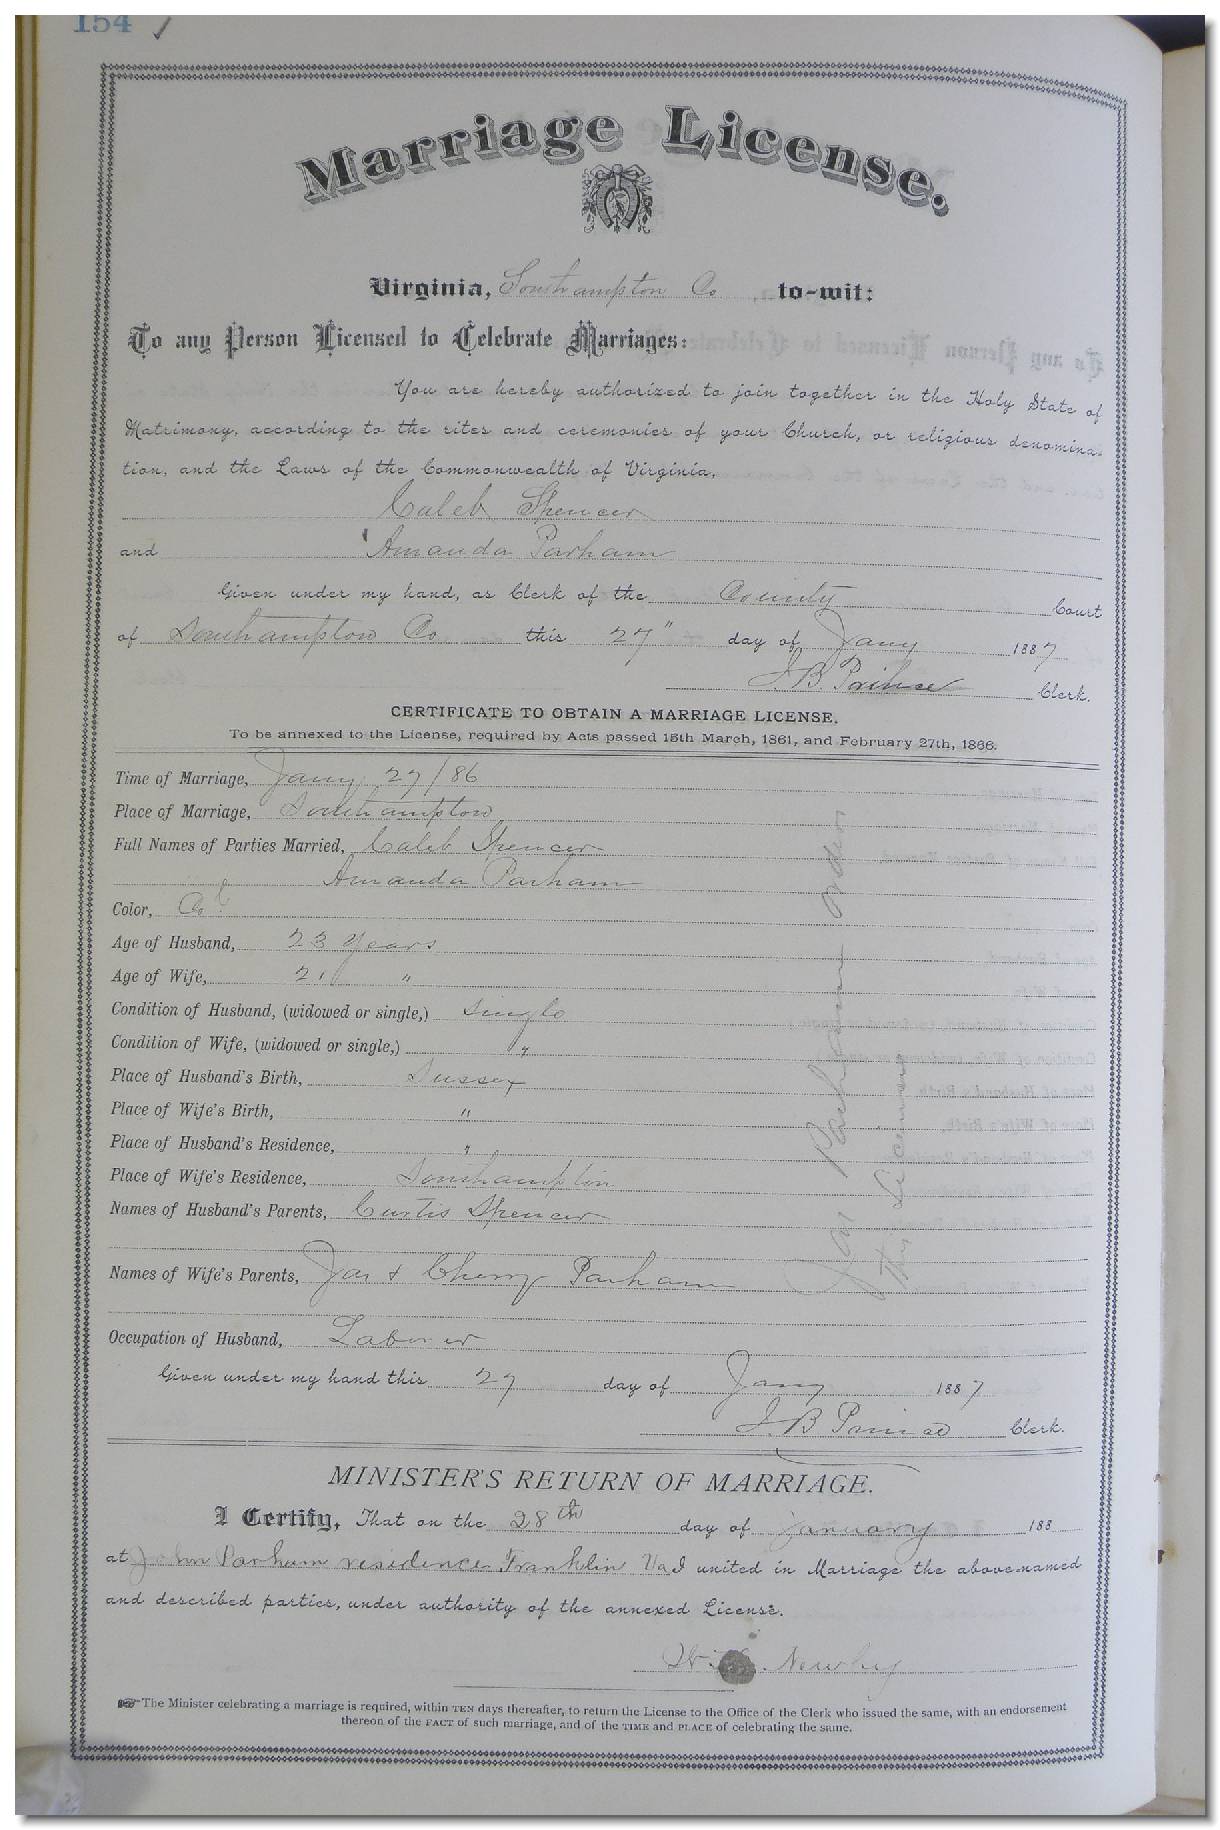 154
Marriage License.
Virginia, Southampton Co to-wit:
To any Person Licensed to Celebrate Marriages:
You are hereby authorized to join together in the Holy State of
Matrimony, according to the rites and ceremonies of your Church, or religious denomina-
tion, and the Laws of the Commonwealth of Virginia,
Caleb Spencer
and Amanda Parham
Given under my hand, as Clerk of the County Court
of Southampton Co this 27" day of Jany 1887
J. B. Prince Clerk.
CERTIFICATE TO OBTAIN A MARRIAGE LICENSE.
To be annexed to the License, required by Acts passed 15th March, 1861, and February 27th, 1866.
Time of Marriage, Jany 27/86
Place of Marriage, Southampton
Full Names of Parties Married, Caleb Spencer
Amanda Parham
Color, Cold
Age of Husband, 23 Years
Age of Wife, 21 "
Condition of Husband, (widowed or single,) Single
Condition of Wife, (widowed or single,) "
Place of Husband's Birth, Sussex
Place of Wife's Birth, "
Place of Husband's Residence, "
Place of Wife's Residence, Southampton
Names of Husband's Parents, Curtis Spencer
Names of Wife's Parents, Jas & Cherry Parham
Occupation of Husband, Laborer
Given under my hand this 27 day of Jany 1887
J. B. Prince Clerk.
Jas Parham orders
this License
MINISTER'S RETURN OF MARRIAGE.
I Certify, That on the 28th day of January 188
at John Parham residence Franklin Va I united in Marriage the above-named
and described parties, under authority of the annexed License.
Newby
☞ The Minister celebrating a marriage is required, within TEN days thereafter, to return the License to the Office of the Clerk who issued the same, with an endorsement
thereon of the FACT of such marriage, and of the TIME and PLACE of celebrating the same.